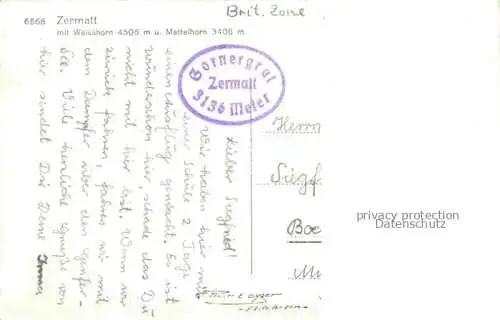 Brit. Zone
6666 Zermatt
mit Weisshorn 4506 m u. Mettelhorn 3406 m
Gornergrat
Zermatt
3136 Meter
Lieber Siegfried!
Wir haben hier mit
einer Schule 2 Tage
einen Ausflug gemacht. Es ist
wunderschön hier, schade das Du
nicht mit hier bist. Wenn wir
zurück fahren, fahren wir mit
dem Dampfer über den Genfer-
See. Viele herzliche Grüße von
hier sendet Dir Deine
Herrn
Siegf
privacy protection
www.oldthing.de
Boc